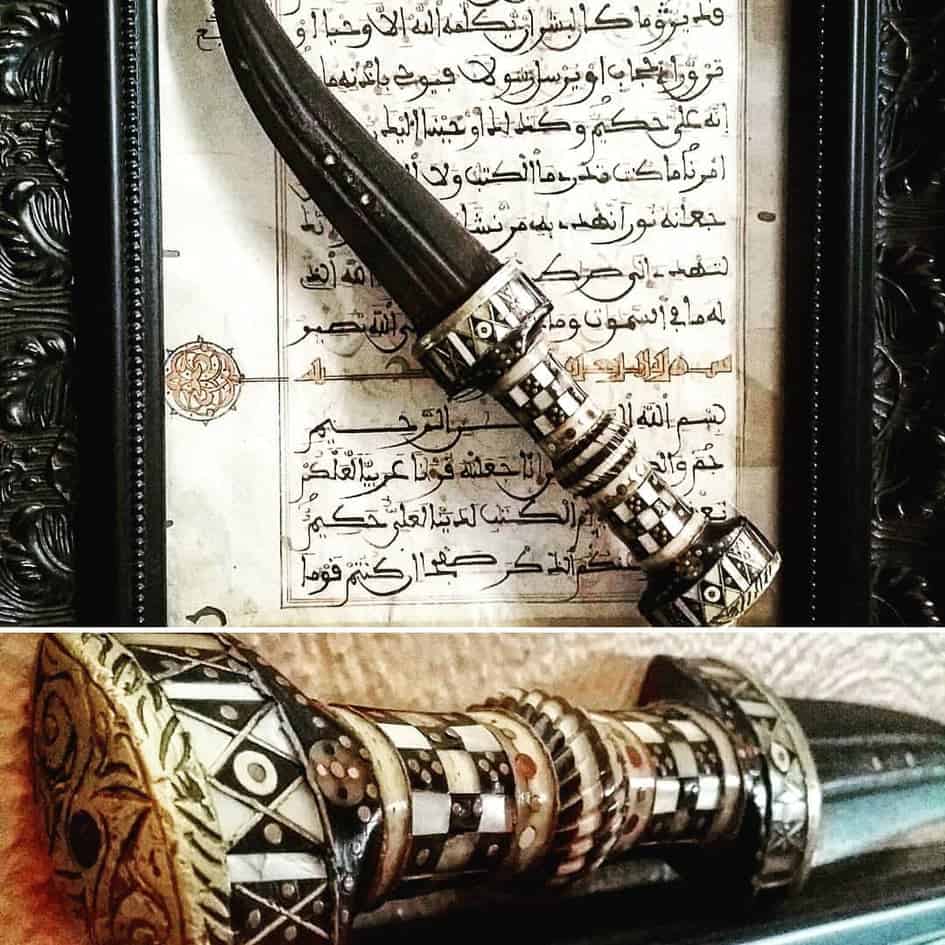 قدير وما كان لبشر ان يكلمه الله الا وحيا او
من ورا حجاب او يرسل رسولا فيوحي باذنه ما
انه علي حكيم وكذلك اوحينا اليك
امرنا ما كنت تدري ما الكتب ولا
جعلنه نورا نهدي به من نشا
لتهدي الى صرط الله الذي
له ما في السموت وما الله تصير
بسم الله الرحيم
حم انا جعلنه قرنا عربيا لعلكم
ام الكتب لدينا لعلي حكيم
عنكم الذكر صفحا ان كنتم قوما